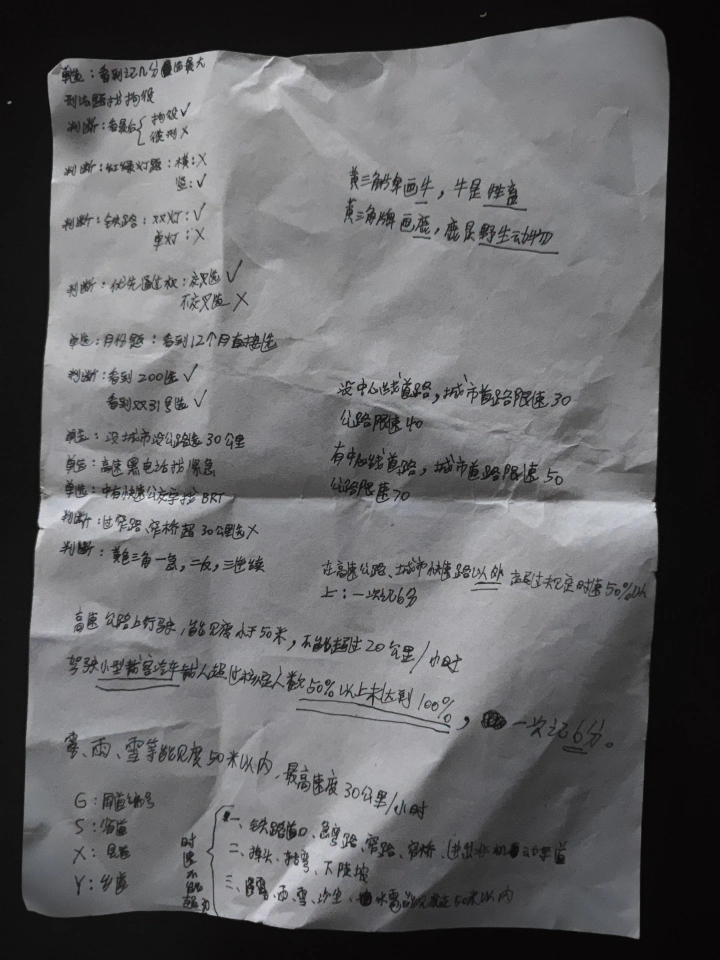 单选：看到记几分选最大
刑法题找拘役
判断：看最后 拘役✓
徒刑✗
判断：红绿灯题：横：✗
竖：✓
判断：铁路：双灯：✓
单灯：✗
判断：优先通行权：交叉选✓
不交叉选✗
单选：月份题：看到12个月直接选
判断：看到200选✓
看到双引号选✓
单选：没城市没公路选30公里
单选：高速黑电话找紧急
单选：中有快速公交字找BRT
判断：过窄路、窄桥超30公里选✗
判断：黄色三角一急，二反，三连续
黄三角牌画牛，牛是牲畜
黄三角牌画鹿，鹿是野生动物
没中心线道路，城市道路限速30
公路限速40
有中心线道路，城市道路限速50
公路限速70
在高速公路、城市快速路以外 超过规定时速50%以
上：一次记6分
高速公路上行驶，能见度小于50米，不能超过20公里/小时
驾驶小型载客汽车载人超过核定人数50%以上未达到100%，一次记6分。
雾、雨、雪等能见度50米以内，最高速度30公里/小时
G：国道编号
S：省道
X：县道
Y：乡道
时速不能超为
一、铁路道口、急弯路、窄路、窄桥、进出非机动车道
二、掉头、转弯、下陡坡
三、雾、雨、雪、沙尘、冰雹能见度在50米以内